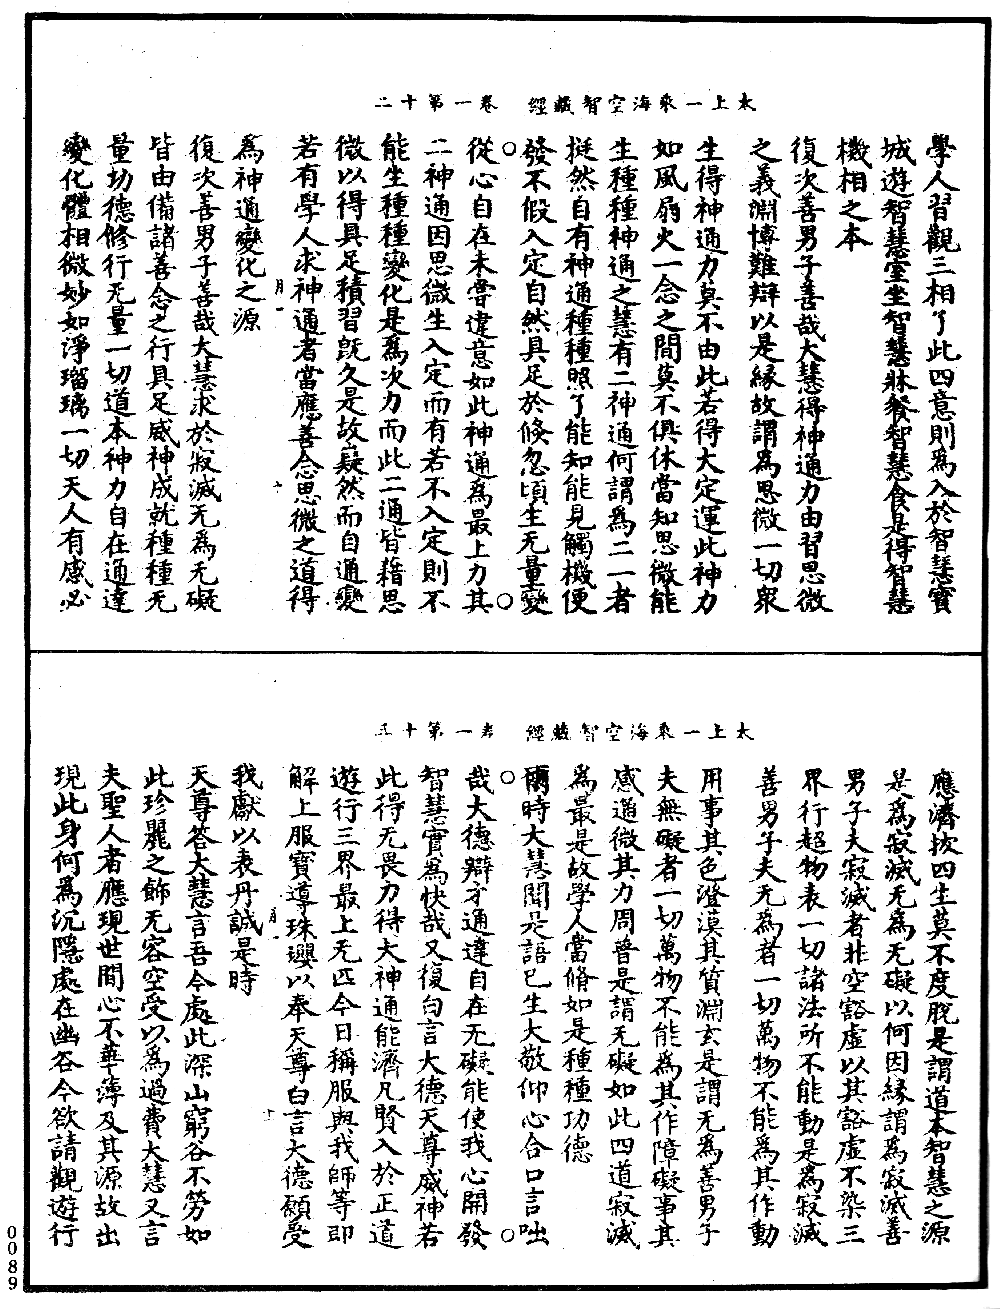 太上一乘海空智藏經　卷一第十二
學人習觀三相了此四意則為入於智慧寶
城遊智慧室坐智慧牀餐智慧食是得智慧
機相之本
復次善男子善哉大慧得神通力由習思微
之義淵博難辯以是緣故謂為思微一切衆
生得神通力莫不由此若得大定運此神力
如風扇火一念之間莫不俱休當知思微能
生種種神通之慧有二神通何謂為二一者
挺然自有神通種種照了能知能見觸機便
發不假入定自然具足於倏忽頃生无量變
從心自在未甞違意如此神通為最上力其
二神通因思微生入定而有若不入定則不
能生種種變化是為次力而此二通皆藉思
微以得具足積習旣久是故凝然而自通變
若有學人求神通者當應善念思微之道得
為神通變化之源
復次善男子善哉大慧求於寂滅无為无礙
皆由備諸善念之行具足威神成就種種无
量功德修行无量一切道本神力自在通達
變化體相微妙如淨瑠璃一切天人有感必
太上一乘海空智藏經　卷一第十三
應濟拔四生莫不度脫是謂道本智慧之源
是為寂滅无為无礙以何因緣謂為寂滅善
男子夫寂滅者非空豁虛以其豁虛不染三
界行超物表一切諸法所不能動是為寂滅
善男子夫无為者一切萬物不能為其作動
用事其色澄漠其質淵玄是謂无為善男子
夫無礙者一切萬物不能為其作障礙事其
感通微其力周普是謂无礙如此四道寂滅
為最是故學人當修如是種種功德
爾時大慧聞是語已生大敬仰心合口言咄
哉大德辯才通達自在无礙能使我心開發
智慧實為快哉又復白言大德天尊威神若
此得无畏力得大神通能濟凡賢入於正道
遊行三界最上无匹今日稱服與我師等即
解上服寶導珠瓔以奉天尊白言大德願受
我獻以表丹誠是時
天尊答大慧言吾今處此深山窮谷不勞如
此珍麗之飾无容空受以為過費大慧又言
夫聖人者應現世間心不華薄及其源故出
現此身何為沉隱處在幽谷今欲請觀遊行
0089